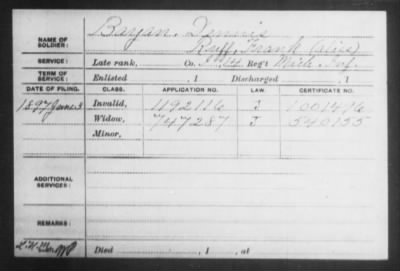 NAME OF SOLDIER: Bryan, Dennis
Ruff, Frank (alias)
SERVICE: Late rank, Co. I, 14 Reg't Mich. Inf.
TERM OF SERVICE: Enlisted , 1 Discharged , 1
DATE OF FILING. CLASS. APPLICATION NO. LAW. CERTIFICATE NO.
1897 June 3 Invalid, 1192116 J 1001476
Widow, 747287 J 540155
Minor,
ADDITIONAL SERVICES:
REMARKS:
Died , 1 , at